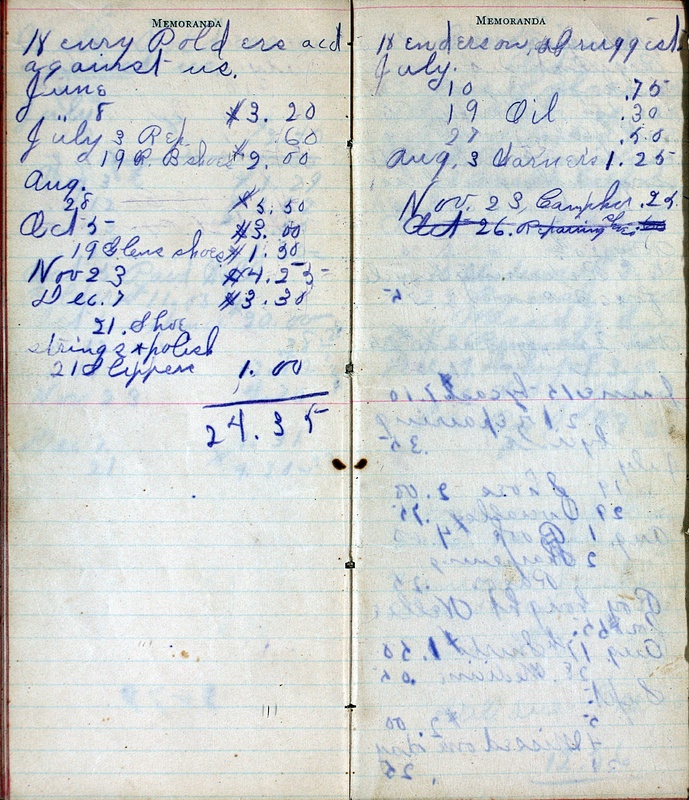 MEMORANDA
Henry Polders acct
against us.
June
8 $3.20
July 3 Rep .60
19 P. B shoes $2.00
Aug.
28 $5.50
Oct 5 $3.00
19 Glens shoes $1.50
Nov 23 $4.25
Dec. 7 $3.30
21. Shoe
strings & polish
21 Slippers 1.00
24.35
MEMORANDA
Henderson, druggist
July.
10 .75
19 Oil .30
27 .50
Aug. 3 Warners 1.25
Nov. 23, Camphor .25
Oct 26. Repairing shoes